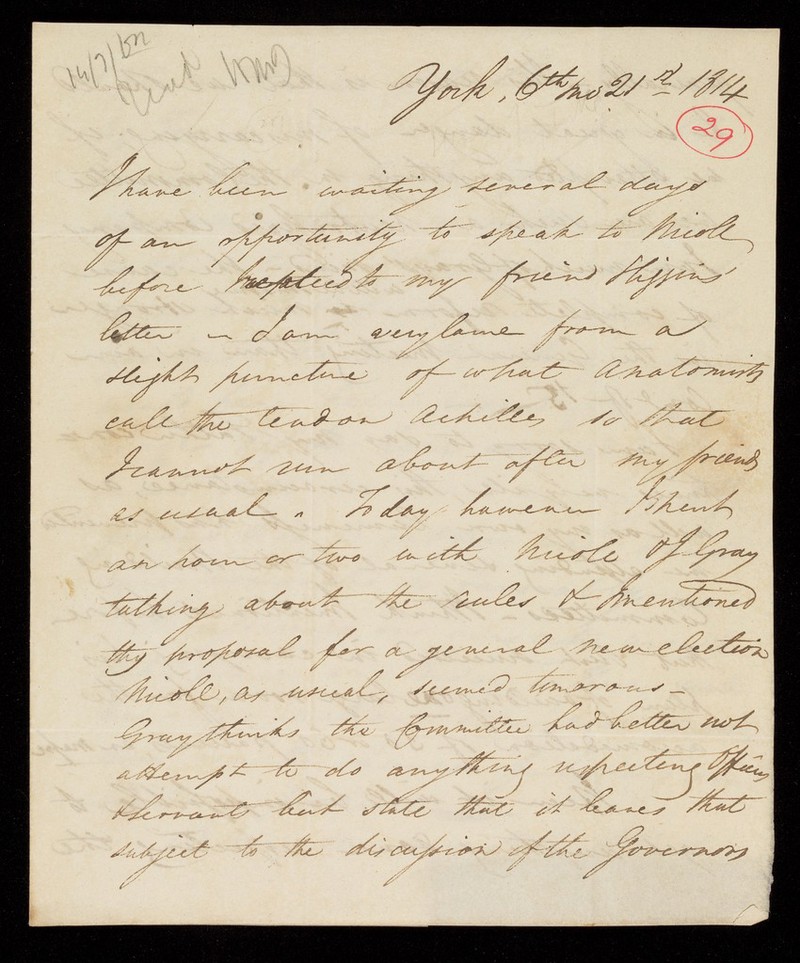 14/7/
York, 6th mo 21st 1814
29
I have been waiting several days
of an opportunity to speak to Nicoll
before I replied to my friend Higgins'
letter – I am very lame from a
slight puncture of what Anatomists
call the tendon Achilles so that
I cannot run about after my friends
as usual. Today however I spent
an hour or two with Nicoll & J Gray
talking about the rules & I mentioned
thy proposal for a general new election
Nicoll, as usual, seemed timorous –
Gray thinks the Committee had better not
attempt to do anything respecting Officers
& Servants but state that it leaves that
subject to the discussion of the Governors